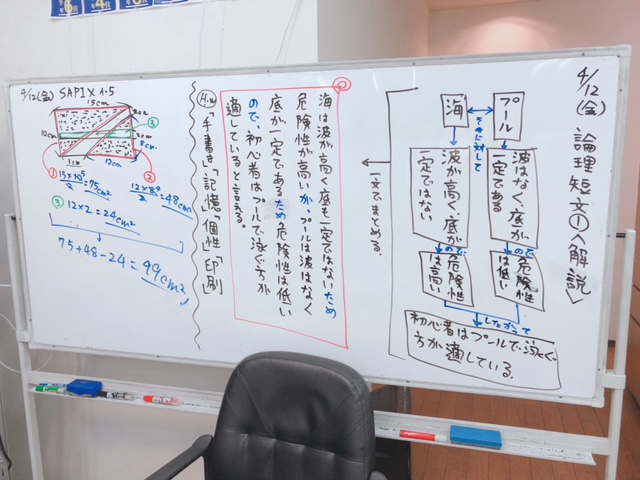 4/12(金) 論理短文①〈解説〉
プール
海
に対して
波はなく、底が
一定である
波が高く、底が
一定ではない
ので
危険性は
低い
ので
危険性は
高い
したがって
初心者はプールで泳ぐ
方が適している。
一文でまとめる。
海は波が高く底も一定ではないため
危険性が高いが、プールは波はなく
底が一定であるため危険性は低い
ので、初心者はプールで泳ぐ方が
適していると言える。
「手書き」「記憶」「個性」「印刷」
4/12(金) SAPIX 1-5
15cm
2cm
③
10cm
8cm
12cm
①
②
15×10
2
=75cm²
12×8
2
=48cm²
③ 12×2=24cm²
75+48-24=99cm²